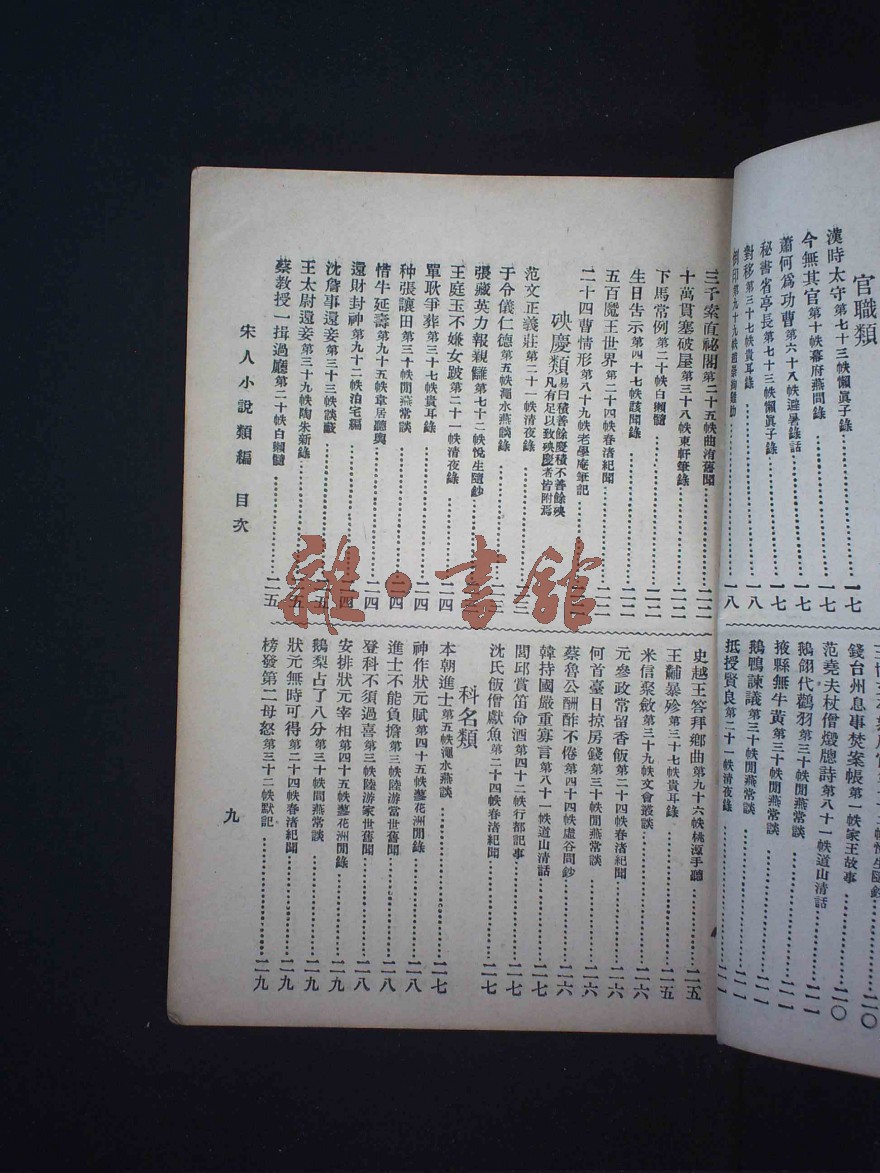 官職類
漢時太守第七十三帙懶眞子錄一七
今無其官第十帙幕府燕閒錄一七
蕭何爲功曹第六十八帙避暑錄話一七
秘書省亭長第七十三帙懶眞子錄一七
對移第三十七帙貴耳錄一八
一八
錢台州息事焚案帳第一帙家王故事二〇
范堯夫杖僧燬牕詩第八十一帙道山清話二〇
鵝翎代鸛羽第三十帙閒燕常談二一
掖縣無牛黃第三十帙閒燕常談二一
鵝鴨諫議第三十帙閒燕常談二一
抵授賢良第二十一帙清夜錄二一
三千索直祕閣第二十五帙曲洧舊聞二二
十萬貫塞破屋第三十八帙東軒筆錄二二
下馬常例第二十帙白獺髓二二
生日告示第四十七帙該聞錄二二
五百魔王世界第二十四帙春渚紀聞二二
二十四曹情形第八十九帙老學庵筆記
殃慶類易曰積善餘慶積不善餘殃凡有足以致殃慶者皆附焉
范文正義莊第二十一帙清夜錄
于令儀仁德第五帙澠水燕談錄
張藏英力報親讎第七十二帙悅生隨鈔
王庭玉不嫌女跛第二十一帙清夜錄二四
單耿爭葬第三十七帙貴耳錄二四
种張讓田第三十帙閒燕常談二四
惜牛延壽第九十五帙韋居聽輿二四
還財封神第九十二帙泊宅編二四
沈詹事還妾第三十三帙談藪二五
王太尉還妾第三十九帙陶朱新錄二五
蔡敎授一揖過廳第二十帙白獺髓二五
史越王答拜鄉曲第九十六帙桃源手聽二五
王黼暴殄第三十七帙貴耳錄二五
米信聚斂第三十九帙文會叢談二六
元參政常留香飯第二十四帙春渚紀聞二六
何首臺日掠房錢第三十帙閒燕常談二六
蔡魯公酬酢不倦第四十四帙虛谷閒鈔二六
韓持國嚴重寡言第八十一帙道山清話二七
閭邱賞笛命酒第四十二帙行都記事二七
沈氏飯僧獻魚第二十四帙春渚紀聞二七
科名類
本朝進士第五帙澠水燕談二七
神作狀元賦第四十五帙蓼花洲閒錄二八
進士不能負擔第三帙陸游當世舊聞二八
登科不須過喜第三帙陸游家世舊聞二八
安排狀元宰相第四十五帙蓼花洲閒錄二九
鵝梨占了八分第三十帙閒燕常談二九
狀元無時可得第二十四帙春渚紀聞二九
榜發第二母怒第三十二帙默記二九
宋人小說類編 目次
九
雜·書館